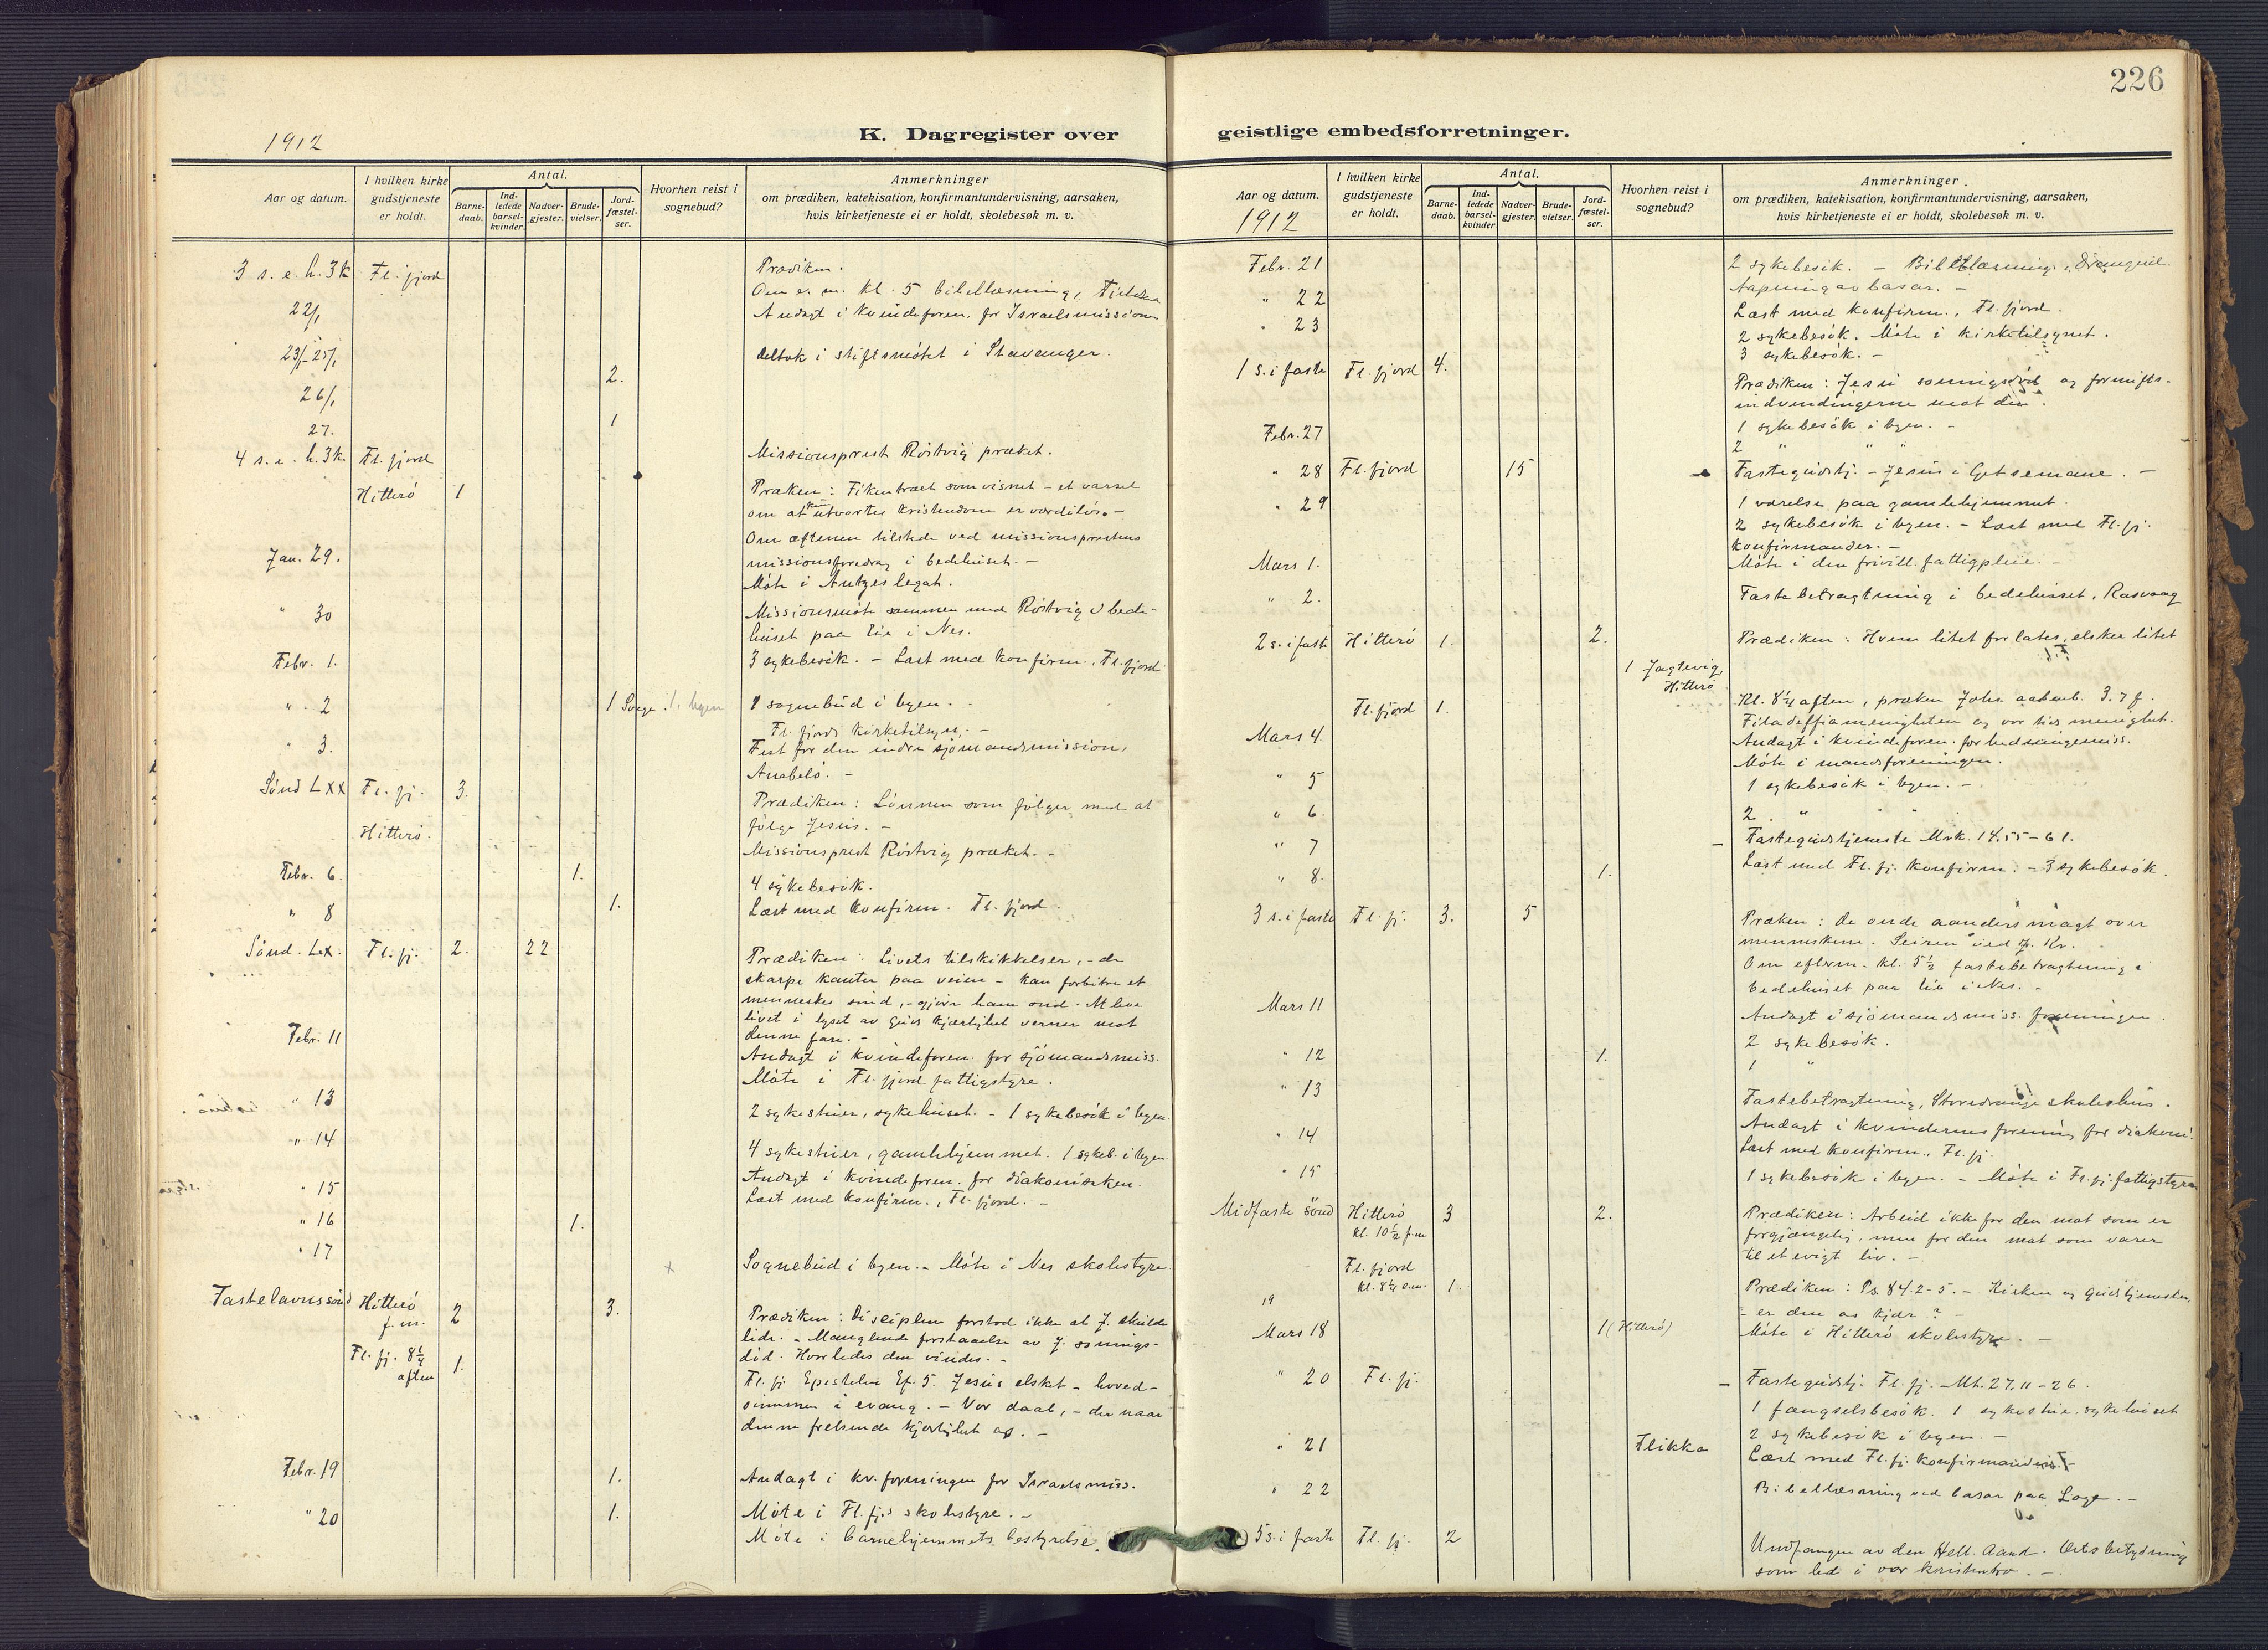 226
1912
K. Dagregister over geistlige embedsforretninger.
Aar og datum.
I hvilken kirke gudstjeneste er holdt.
Antal.
Barne-daab.
Ind-ledede barsel-kvinder.
Nadver-gjester.
Brude-vielser.
Jord-fæstel-ser.
Hvorhen reist i sognebud?
Anmerkninger
om prædiken, katekisation, konfirmantundervisning, aarsaken,
hvis kirketjeneste ei er holdt, skolebesøk m. v.
3 s. e. h. 3k Fl. fjord Prædiken.
Om e. m. kl. 5 bibellæsning,
22/1 Andagt i kvindeforen. for Israelsmission
23/1-25/1 deltok i stiftsmötet i Stavanger.
26/1 2.
27. 1
4 s. e. h. 3k. Fl. fjord Missionsprest Röstvig præket.
Hitterö 1 Præken: Fikentræet som visnet – et varsel
om at utvortes kristendom er værdilös. –
Om aftenen tilstede ved missionsprestens
missionsforedrag i bedehuset. –
Jan. 29. Möte i legat.
" 30 Missionsmöte sammen med Röstvig i bede-
huset paa Lie i Nes.
Febr. 1. 3 sykebesök. – Læst med konfirm., Fl. fjord
" 2 1 1 sognebud i byen. –
Fl. fjords kirketilsyn. –
" 3. Fest for den indre sjömandsmission,
Anabelö. –
Sönd Lxx Fl. fj. 3. Prædiken: Lönnen som fölger med at
fölge Jesus. –
Hitterö. Missionsprest Röstvig præket. –
Febr. 6. 1. 4 sykebesök.
" 8 1. Læst med konfirm. Fl. fjord.
Sönd. Lx. Fl. fj. 2. 22 Prædiken: Livets tilskikkelser, – de
skarpe kanter paa veien – kan forbitre et
menneskes sind, – gjöre ham ond. At leve
livet i lyset av Guds kjærlighet verner mot
denne fare. –
Febr. 11 Andagt i kvindeforen. for sjömandsmiss.
Möte i Fl. fjord fattigstyre.
" 13 2 sykestuer, sykehuset. – 1 sykebesök i byen
" 14 4 sykestuer, gamlehjemmet. 1 sykeb. i byen.
Andagt i kvindeforen. for diakonisaken.
" 15 Læst med konfirm., Fl. fjord. –
" 16 1.
" 17 x Sognebud i byen. – Möte i Nes skolestyre.
Fastelavnssönd Hitterö f. m. 2 3. Prædiken: Disciplene forstod ikke at J. skulde
lide. – Manglende forstaaelse av J. sonings-
död. Hvorledes den vindes. –
Fl. fj. 8¼ aften 1. Fl. fj. Epistelen Ef. 5. Jesus elsket – hoved-
summen i evang. – Vor daab, – der naar
denne frelsende kjærlighet os. –
Febr. 19 1. Andagt i kv. foreningen for Israelsmiss.
" 20 1. Möte i Fl. fjs skolestyre. –
Möte i barnehjemmets bestyrelse.
Aar og datum.
1912
I hvilken kirke gudstjeneste er holdt.
Antal.
Barne-daab.
Ind-ledede barsel-kvinder
Nadver-gjester.
Brude-vielser.
Jord-fæstel-ser.
Hvorhen reist i sognebud?
Anmerkninger.
om prædiken, katekisation, konfirmantundervisning, aarsaken,
hvis kirketjeneste ei er holdt, skolebesøk m. v.
Febr. 21 2 sykebesök. – Bibellæsning,
Aapning av basar. –
" 22 Læst med konfirm., Fl. fjord.
" 23 2 sykebesök. Möte i kirketilsynet.
3 sykebesök. –
1 s. i faste Fl. fjord 4. Prædiken: Jesu soningsdöd og fornufts-
indvendingerne mot den.
Febr. 27 1 sykebesök i byen. –
2 " " "
" 28 Fl. fjord 15 Fastegudstj. – Jesus i Getsemane. –
1 værelse paa gamlehjemmet.
" 29 2 sykebesök i byen. – Læst med Fl. fj.
konfirmander. –
Mars 1. Möte i den frivill. fattigpleie. –
" 2. Fastebetragtning i bedehuset, Rasvaag
2 s. i faste Hitterö 1. 2. Prædiken: Hvem litet forlates, elsker litet
1 Jagtevig, Hitterö
Fl. fjord 1. Kl. 8¼ aften, præken Johs aabenb. 3. 7 f.
Filadelfiamenigheten og vor tids menighet.
Mars 4. Andagt i kvindeforen. for hedningemiss.
Möte i mandsforeningen.
" 5 1 sykebesök i byen. –
" 6. 2. " " "
" 7 Fastegudstjeneste Mrk. 14. 55–61.
" 8. 1. Læst med Fl. fj. konfirm. – 3 sykebesök.
3 s. i faste Fl. fj. 3. 5 Præken: De onde aanders magt over
menneskene. Seiren ved J. Kr.
Om efterm. kl. 5½ fastebetragtning i
bedehuset paa Lie i Nes. –
Mars 11 Andagt i sjömandsmiss. foreningen.
2 sykebesök.
" 12 1. 1 "
" 13 Fastebetragtning, skolehus.
" 14 Andagt i kvindernes forening for diakoni.
Læst med konfirm., Fl. fj.
" 15 1 sykebesök i byen. – Möte i Fl. fj. fattigstyre
Midfaste sönd Hitterö kl. 10½ f.m 3 2. Prædiken: Arbeid ikke for den mat som er
forgjængelig, men for den mat som varer
til et evigt liv. –
Fl. fjord kl. 8¼ e.m. 1. Prædiken: Ps. 84. 2-5. – Kirken og Gudstjenesten,
– er den os kjær? –
19
Mars 18 1 (Hitterö) Möte i Hitterö skolestyre. –
" 20 Fl. fj. Fastegudstj. Fl. fj. – Mt. 27. 11–26.
1 fængselsbesök. 1 sykestue, sykehuset
2 sykebesök i byen. –
" 21 Flikka Læst med Fl. fj. konfirmander. –
" 22 Bibellæsning ved basar paa Loge. –
5 s. i faste Fl. fj. 2 Undfangen av den Hell. Aand.
som led i vor kristentro. –